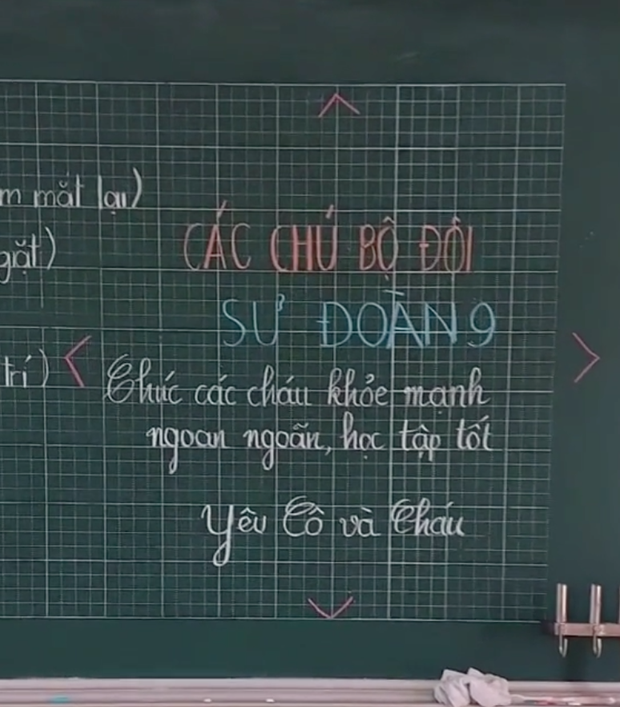 mắt lại)
gặt)
trí)
CÁC CHÚ BỘ ĐỘI
SƯ ĐOÀN 9
Chúc các cháu khỏe mạnh
ngoan ngoãn, học tập tốt
Yêu Cô và Cháu